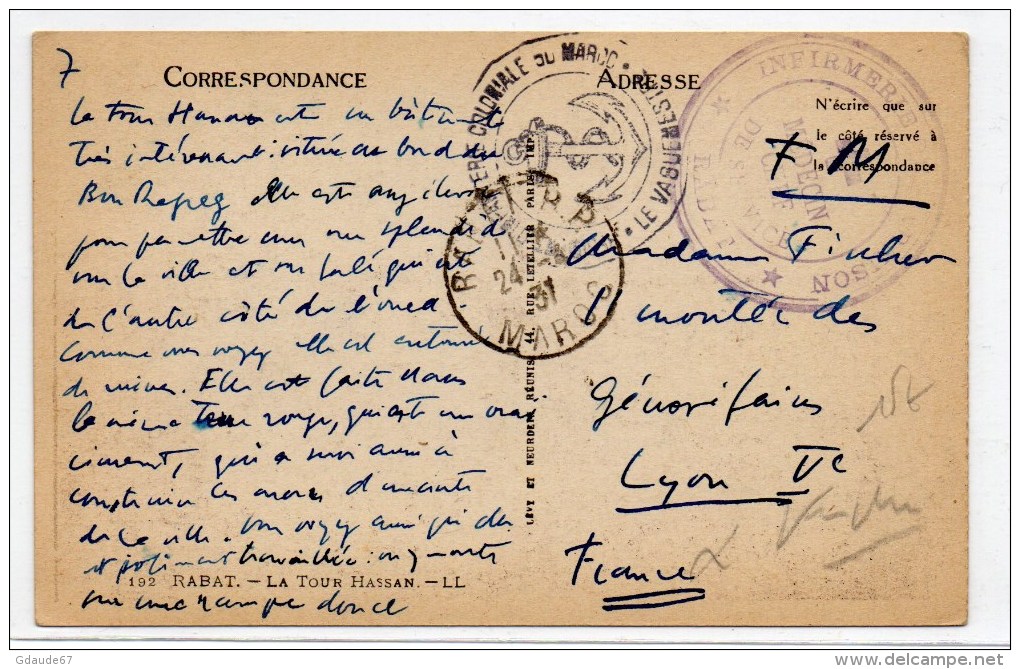 7
CORRESPONDANCE
La Tour Hassan est un bâtiment
très intéressant située au bord du
Bou Regreg elle est assez élevée
pour permettre une vue splendide
sur la ville et sur Salé qui est
de l'autre côté de l'oued
comme vous voyez elle est entourée
de ruines. Elle est faite dans
la même terre rouge, qui est un vrai
ciment, qui a servi aussi à
construire les murs d'enceinte
de la ville. Vous voyez aussi qu'elle
est joliment travaillée : on y monte
par une rampe douce
192 RABAT. - LA TOUR HASSAN. - LL
LÉVY ET NEURDEIN RÉUNIS 44, RUE LETELLIER PARIS IMP.
COLONIALE DU MAROC • LE VAGUEMESTRE •
RABAT R.P.
24
31
MAROC
ADRESSE
N'écrire que sur
le côté réservé à
la correspondance
INFIRMERIE
MÉDECIN
F M
Madame Fischer
montée des
Génovéfains
Lyon Ve
France
© Gdaude67
http://www.delcampe.net